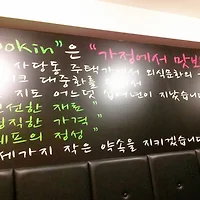 okin" 은 "가정에서 맛보
사당동 주택가에서 외식문화의
크 대중화를
지도 어느덧 년이 지났습니다
선한 재료 "
직한 가격 "
셰프의 정성 "
세가지 작은 약속을 지키겠습니다